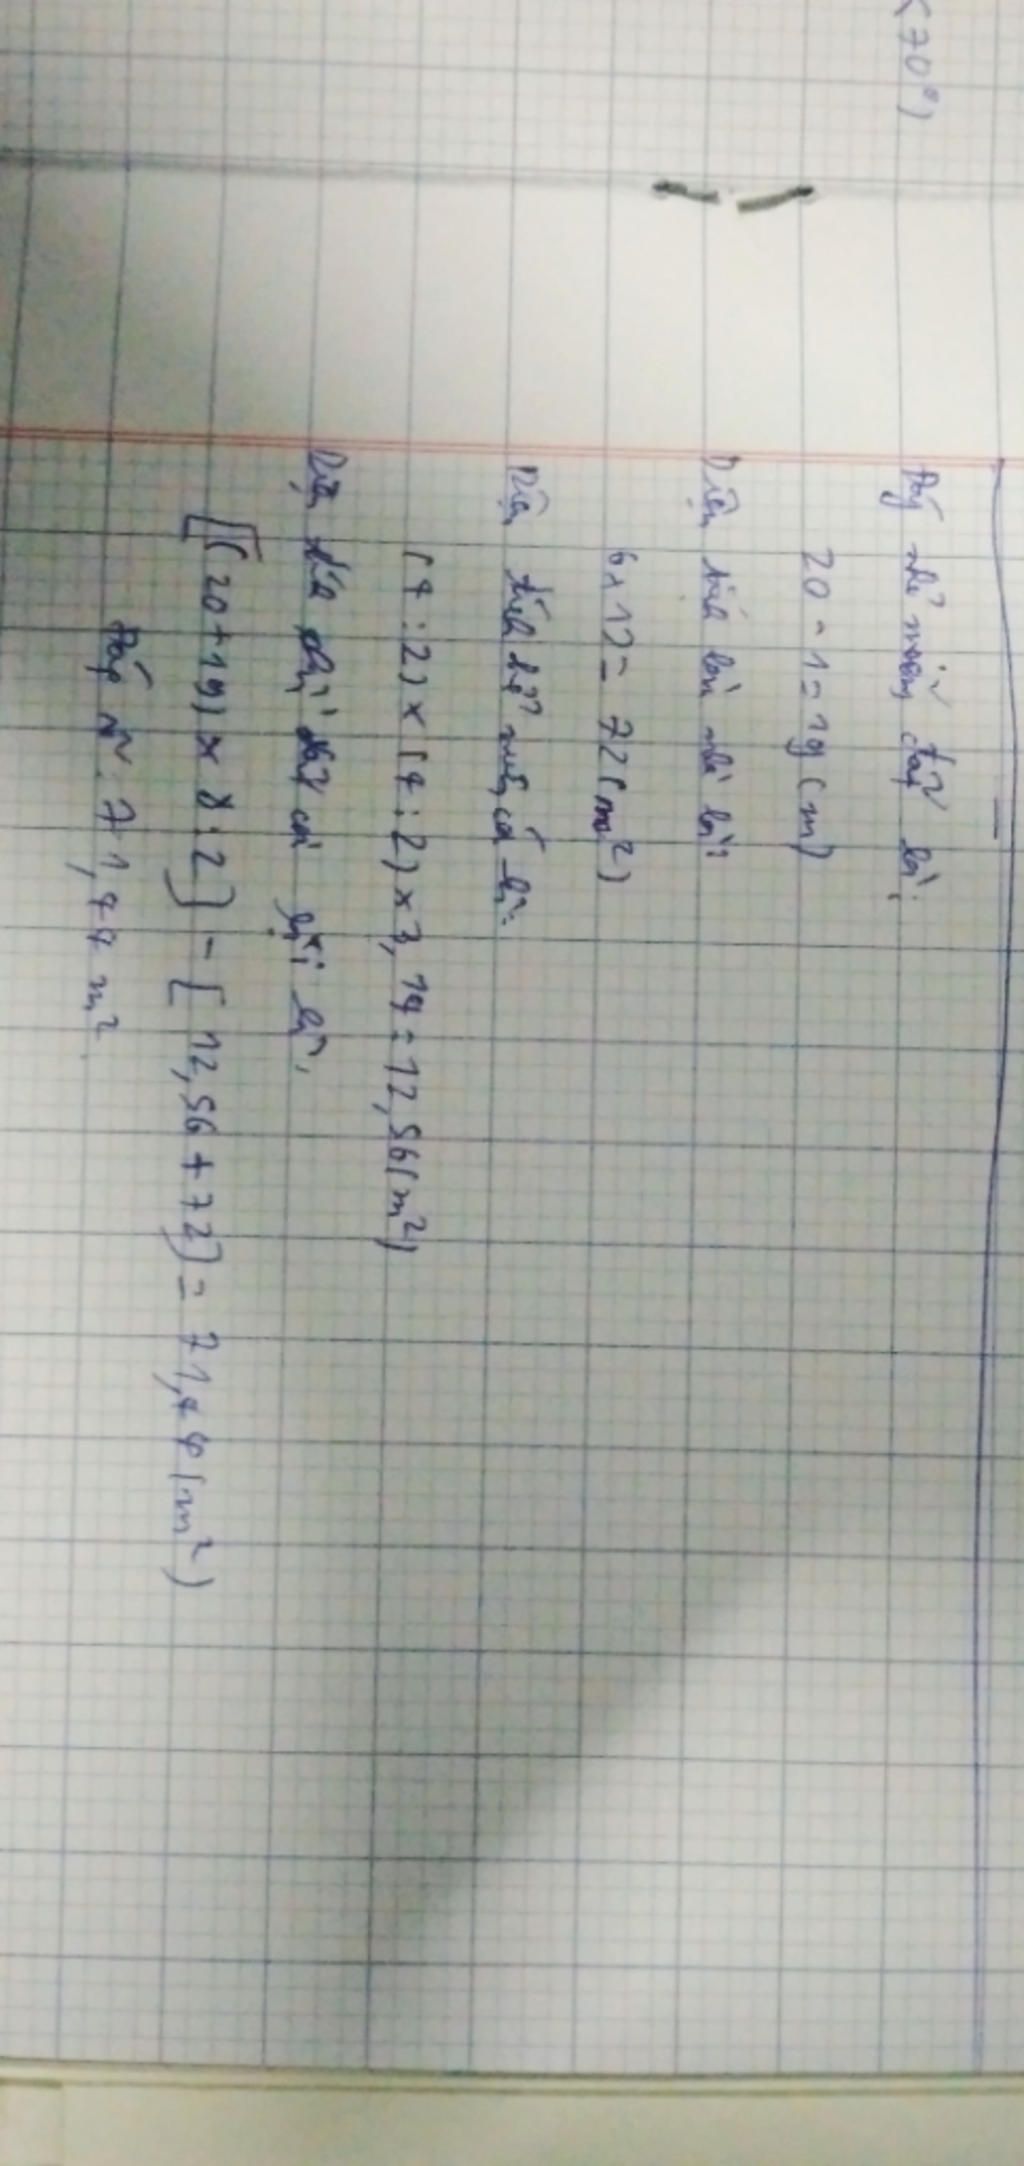 <70°)
Đáy nhỏ mảnh đất là:
20 - 1 = 19 (m)
Diện tích làm nhà là:
6 x 12 = 72 (m²)
Diện tích bể nuôi cá là:
(4 : 2) x (4 : 2) x 3,14 = 12,56 (m²)
Diện tích còn lại là:
[(20 + 19) x 8 : 2] - [12,56 + 72] = 71,44 (m²)
Đáp số: 71,44 m²